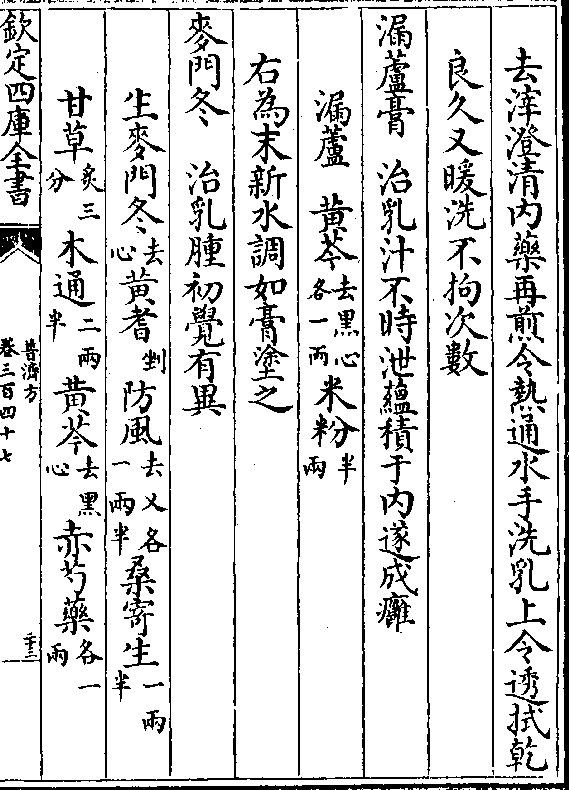 去滓澄清内藥再煎令熱通水手洗乳上令透拭乾
良久又暖洗不拘次數
漏蘆膏 治乳汁不時泄蘊積于内遂成癰
漏蘆 黄芩去黑心各一兩 米粉半兩
右為末新水調如膏塗之
麥門冬 治乳腫初覺有異
生麥門冬去心 黄耆剉 防風去乂各一兩半 桑寄生一兩半
甘草炙三分 木通二兩半 黄芩去黑心 赤芍藥各一兩
欽定四庫全書 普濟方卷三百四十七